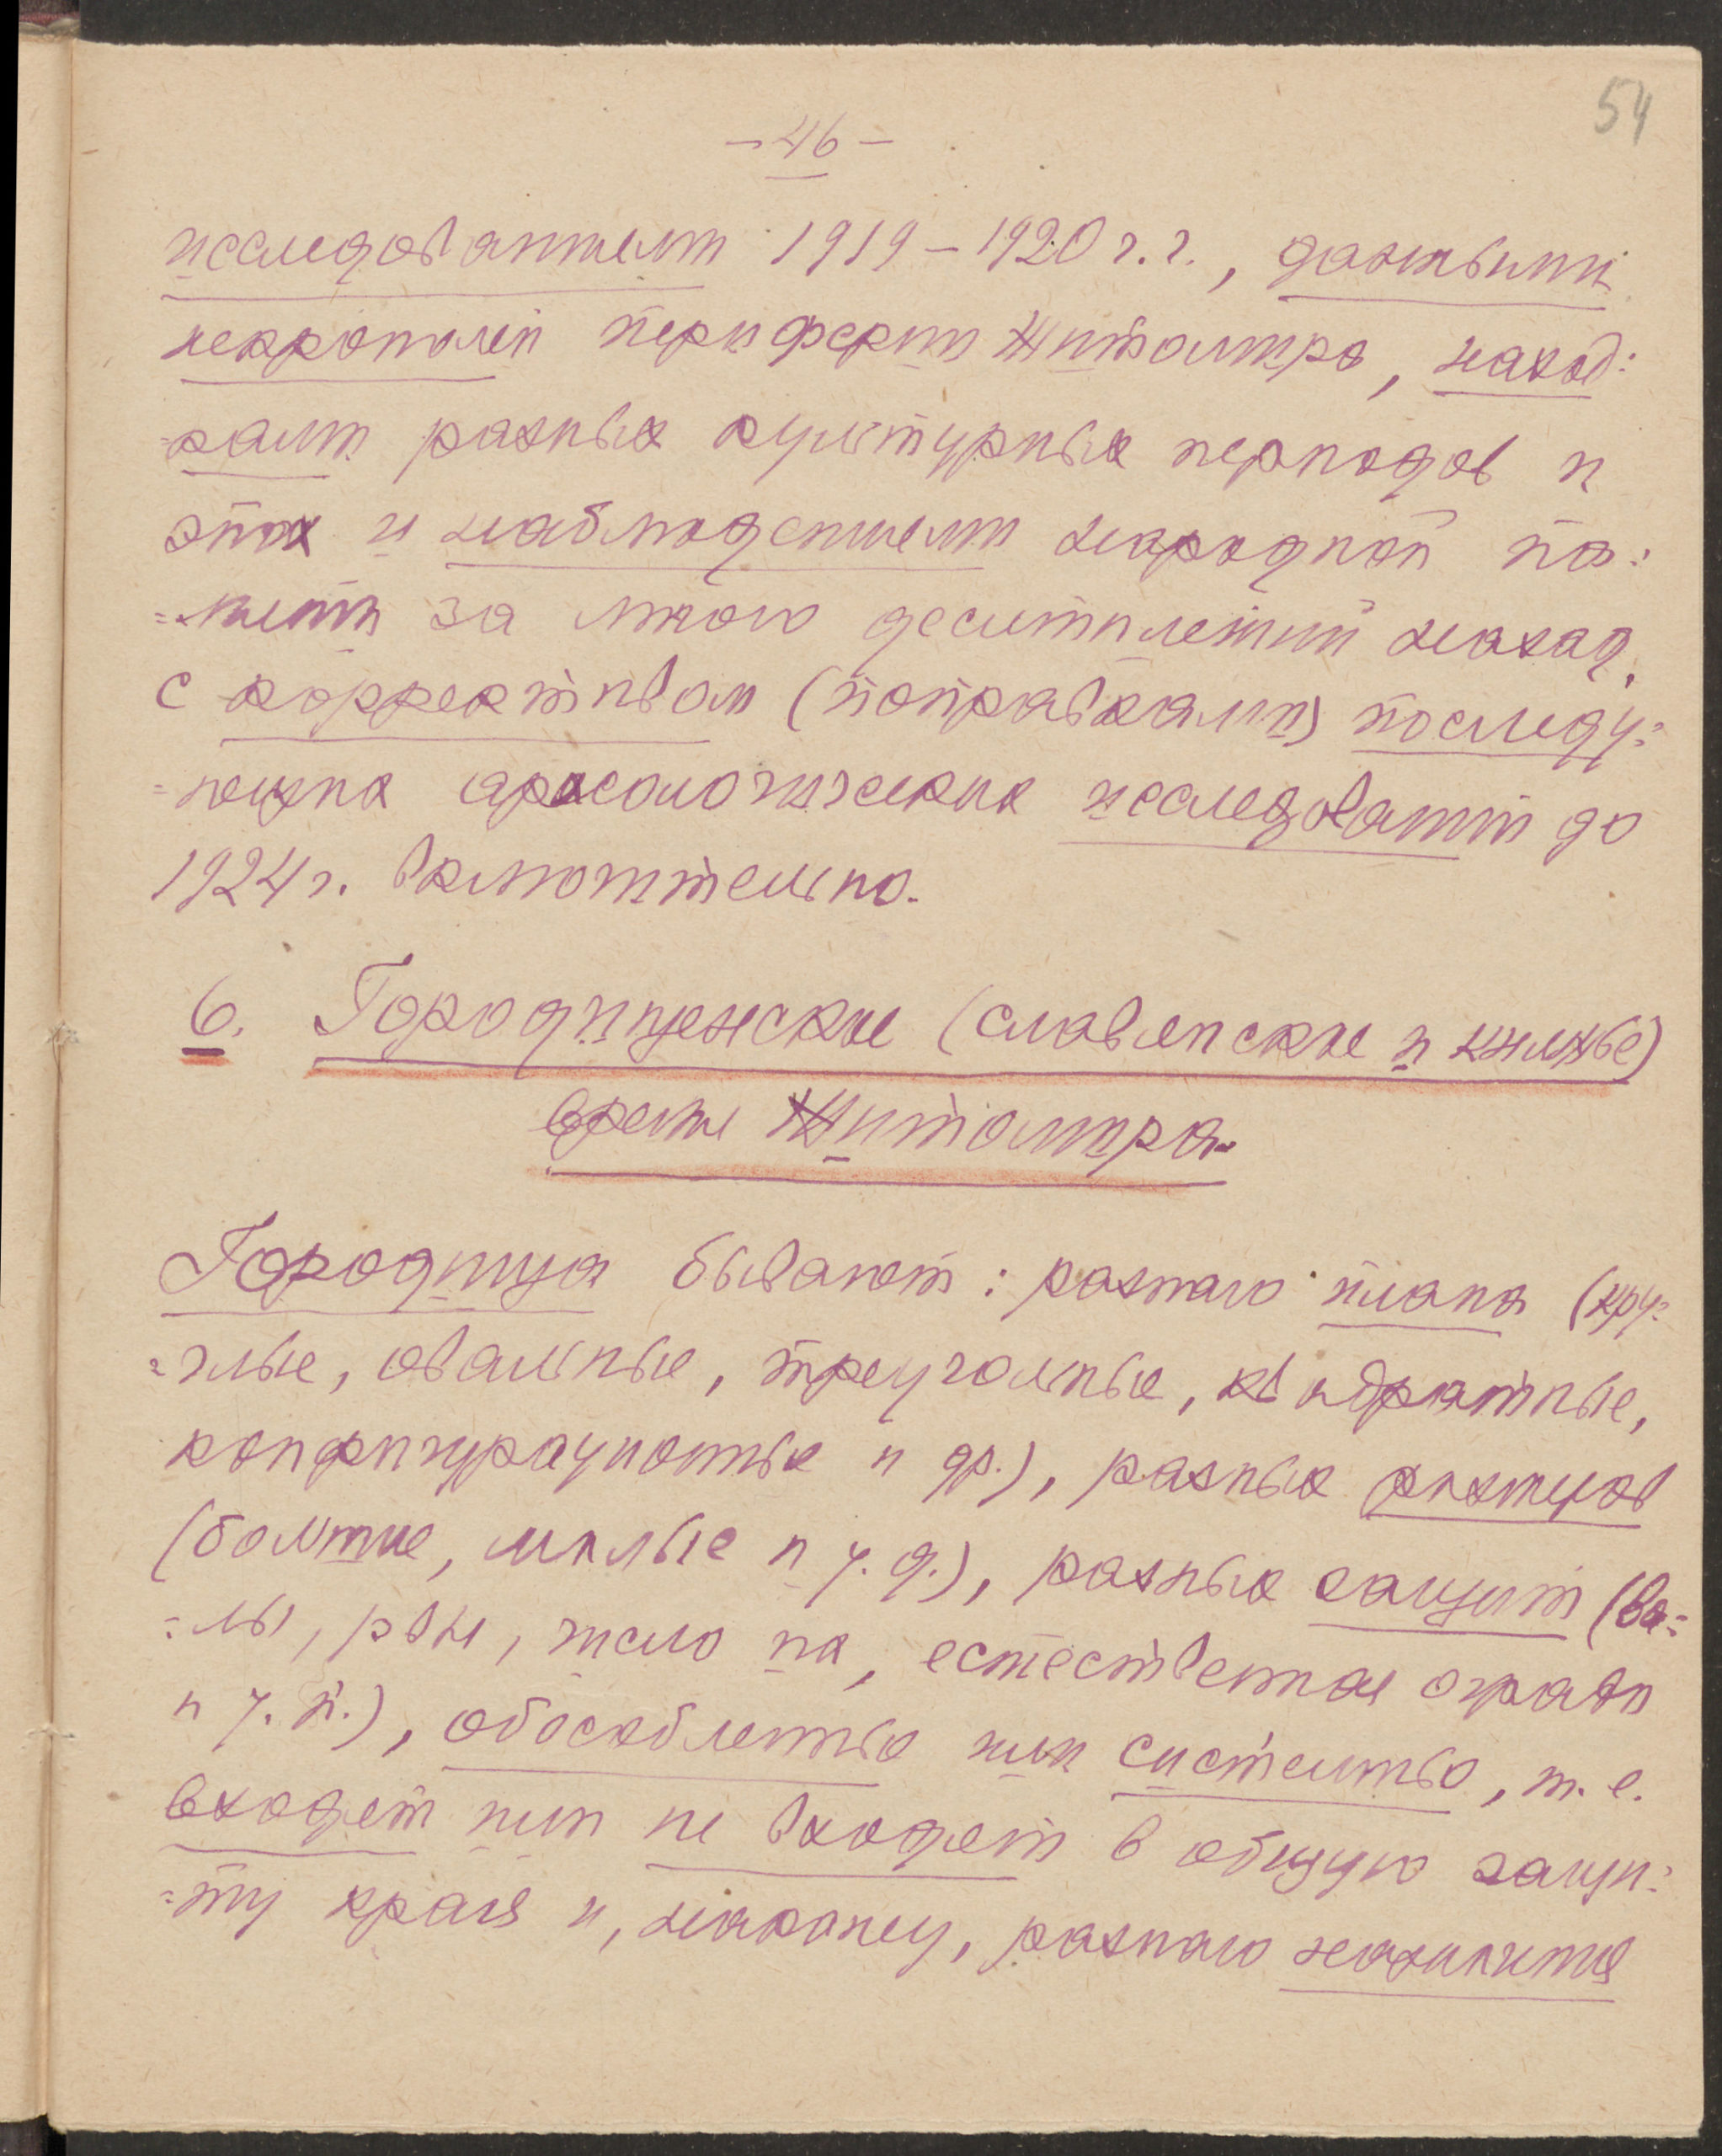 54
- 46 -
исследованиями 1919-1920 г.г., данными
некрополей периферии Житомира, наход:
=ками разных культурных периодов и
эпох и наблюдениями народной па:
=мяти за много десятилетий назад,
с коррективом (поправками) последу:
=ющих археологических исследований до
1924 г. включительно.
6. Городищенские (славянские и княжьи)
время Житомира.
Городища бывают: разного плана (кру:
=глые, овальные, треугольные, квадратные,
конфигурационные и др.), разных размеров
(большие, малые и т. д.), разных защит (ва:
=лы, рвы, число их, естественная ограда
и т. п.), обособленные или системные, т. е.
входят или не входят в общую защи:
=ту края и, наконец, разного назначения